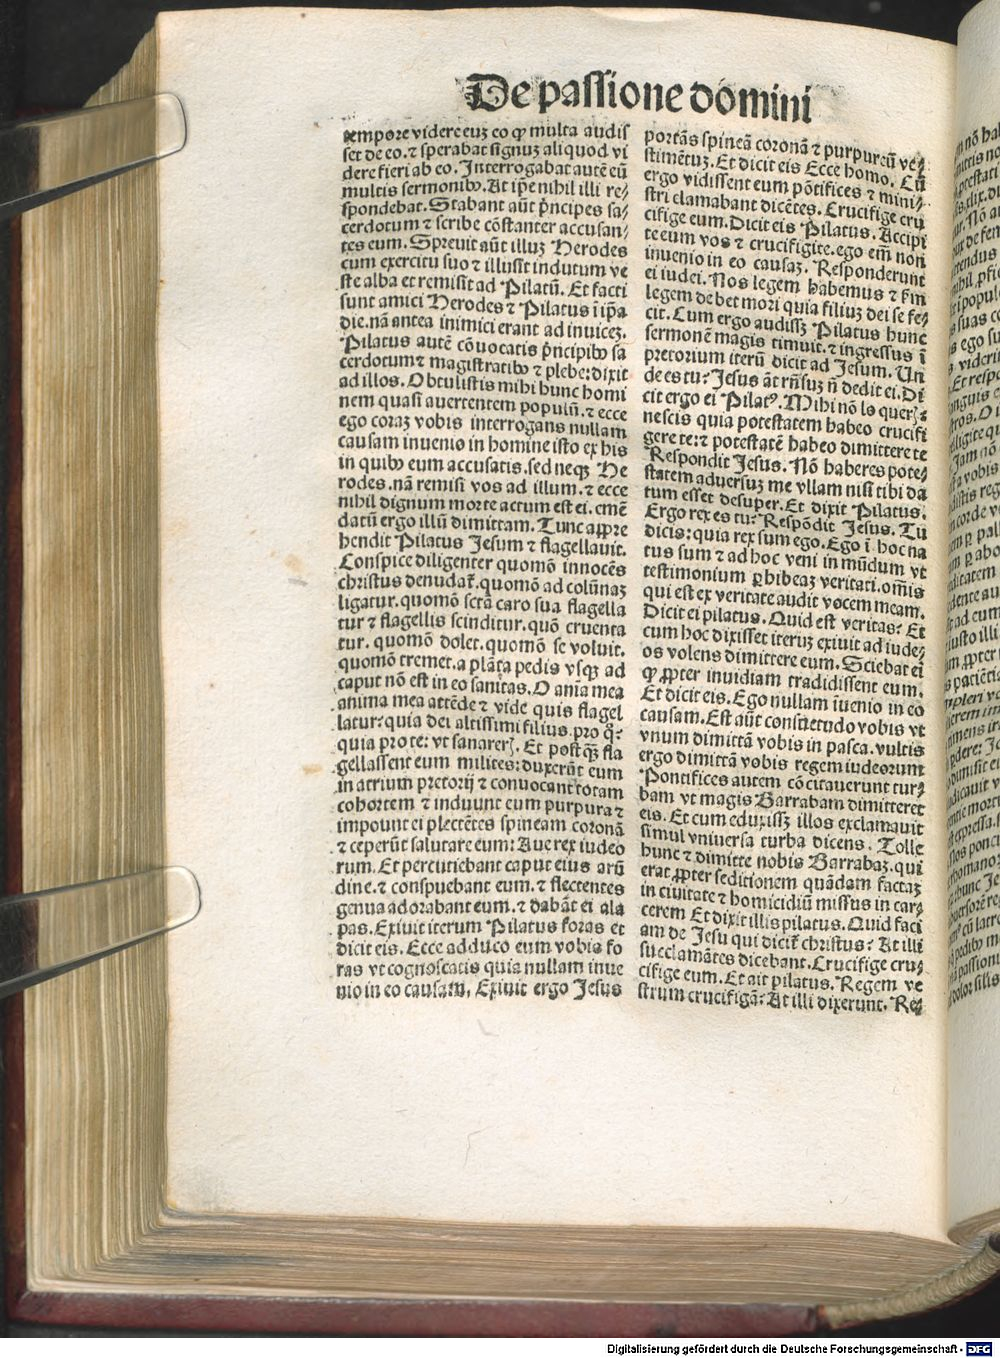 De passione domini
tempore videre euꝫ eo ꝙ multa audis
set de eo. ⁊ sperabat signuꝫ aliquod vi
dere fieri ab eo. Interrogabat autē eū
multis sermonibꝰ. At ip̄e nihil illi re⸗
spondebat. Stabant aūt p̄ncipes sa⸗
cerdotum ⁊ scribe cōstanter accusan⸗
tes eum. Spreuit aūt illuꝫ Herodes
cum exercitu suo ⁊ illusit indutum ve
ste alba et remisit ad Pilatū. Et facti
sunt amici Herodes ⁊ Pilatus ī ip̄a
die. nā antea inimici erant ad inuiceꝫ.
Pilatus autē cōuocatis p̄ncipibꝰ sa
cerdotum ⁊ magistratibꝰ ⁊ plebe: dixit
ad illos. Obtulistis mihi hunc homi
nem quasi auertentem populū. ⁊ ecce
ego coraꝫ vobis interrogans nullam
causam inuenio in homine isto ex his
in quibꝰ eum accusatis. sed neqꝫ He
rodes. nā remisi vos ad illum. ⁊ ecce
nihil dignum morte actum est ei. emē
datū ergo illū dimittam. Tunc appre
hendit Pilatus Jesum ⁊ flagellauit.
Conspice diligenter quomō innocēs
christus denudat᷑. quomō ad colūnaꝫ
ligatur. quomō sctā caro sua flagella
tur ⁊ flagellis scinditur. quō cruenta
tur. quomō dolet. quomō se voluit.
quomō tremet. a plāta pedis vsqꝫ ad
caput nō est in eo sanitas. O aīa mea
anima mea attēde ⁊ vide quis flagel
latur: quia dei altissimi filius. pro q̄:
quia pro te: vt sanareris. Et postqꝫ fla
gellassent eum milites: duxerūt eum
in atrium pretorij ⁊ conuocant totam
cohortem ⁊ induunt eum purpura ⁊
imponunt ei plectētes spineam coronā
⁊ ceperūt salutare eum: Aue rex iudeo
rum. Et percutiebant caput eius arū
dine. ⁊ conspuebant eum. ⁊ flectentes
genua adorabant eum. ⁊ dabāt ei ala
pas. Exiuit iterum Pilatus foras et
dicit eis. Ecce adduco eum vobis fo
ras vt cognoscatis quia nullam inue
nio in eo causam. Exiuit ergo Jesus
portās spineā coronā ⁊ purpureū ve⸗
stimētuꝫ. Et dicit eis Ecce homo. Cū
ergo vidissent eum pōtifices ⁊ mini⸗
stri clamabant dicētes. Crucifige cru
cifige eum. Dicit eis Pilatus. Accipi
te eum vos ⁊ crucifigite. ego em̄ non
inuenio in eo causaꝫ. Responderunt
ei iudei. Nos legem habemus ⁊ ẜm
legem debet mori quia filiuꝫ dei se fe⸗
cit. Cum ergo audissꝫ Pilatus hunc
sermonē magis timuit. ⁊ ingressus ī
pretorium iterū dicit ad Jesum. Un
de es tu? Jesus āt rn̄suꝫ nō dedit ei. Di
cit ergo ei Pilatꝰ. Mihi nō loqueris:
nescis quia potestatem habeo crucifi
gere te: ⁊ potestatē habeo dimittere te
Respondit Jesus. Nō haberes pote⸗
statem aduersuꝫ me vllam nisi tibi da
tum esset desuper. Et dixit Pilatus.
Ergo rex es tu? Respōdit Jesus. Tu
dicis: quia rex sum ego. Ego ī hoc na
tus sum ⁊ ad hoc veni in mūdum vt
testimonium ꝑhibeaꝫ veritati. om̄is
qui est ex veritate audit vocem meam.
Dicit ei pilatus. Quid est veritas? Et
cum hoc dixisset iteruꝫ exiuit ad iude⸗
os volens dimittere eum. Sciebat ei
ꝙ ꝓpter inuidiam tradidissent eum.
Et dicit eis. Ego nullam īuenio in eo
causam. Est aūt consuetudo vobis vt
vnum dimittā vobis in pasca. vultis
ergo dimittā vobis regem iudeorum
Pontifices autem cōcitauerunt tur⸗
bam vt magis Barrabam dimitteret
eis. Et cum eduxissꝫ illos exclamauit
simul vniuersa turba dicens. Tolle
hunc ⁊ dimitte nobis Barrabaꝫ. qui
erat ꝓpter seditionem quādam factaꝫ
in ciuitate ⁊ homicidiū missus in car⸗
cerem Et dixit illis pilatus. Quid faci
am de Jesu qui dicit᷑ christus? At illi
succlamātes dicebant. Crucifige cru⸗
cifige eum. Et ait pilatus. Regem ve
strum crucifigā? At illi dixerunt. Re⸗
Digitalisierung gefördert durch die Deutsche Forschungsgemeinschaft - DFG